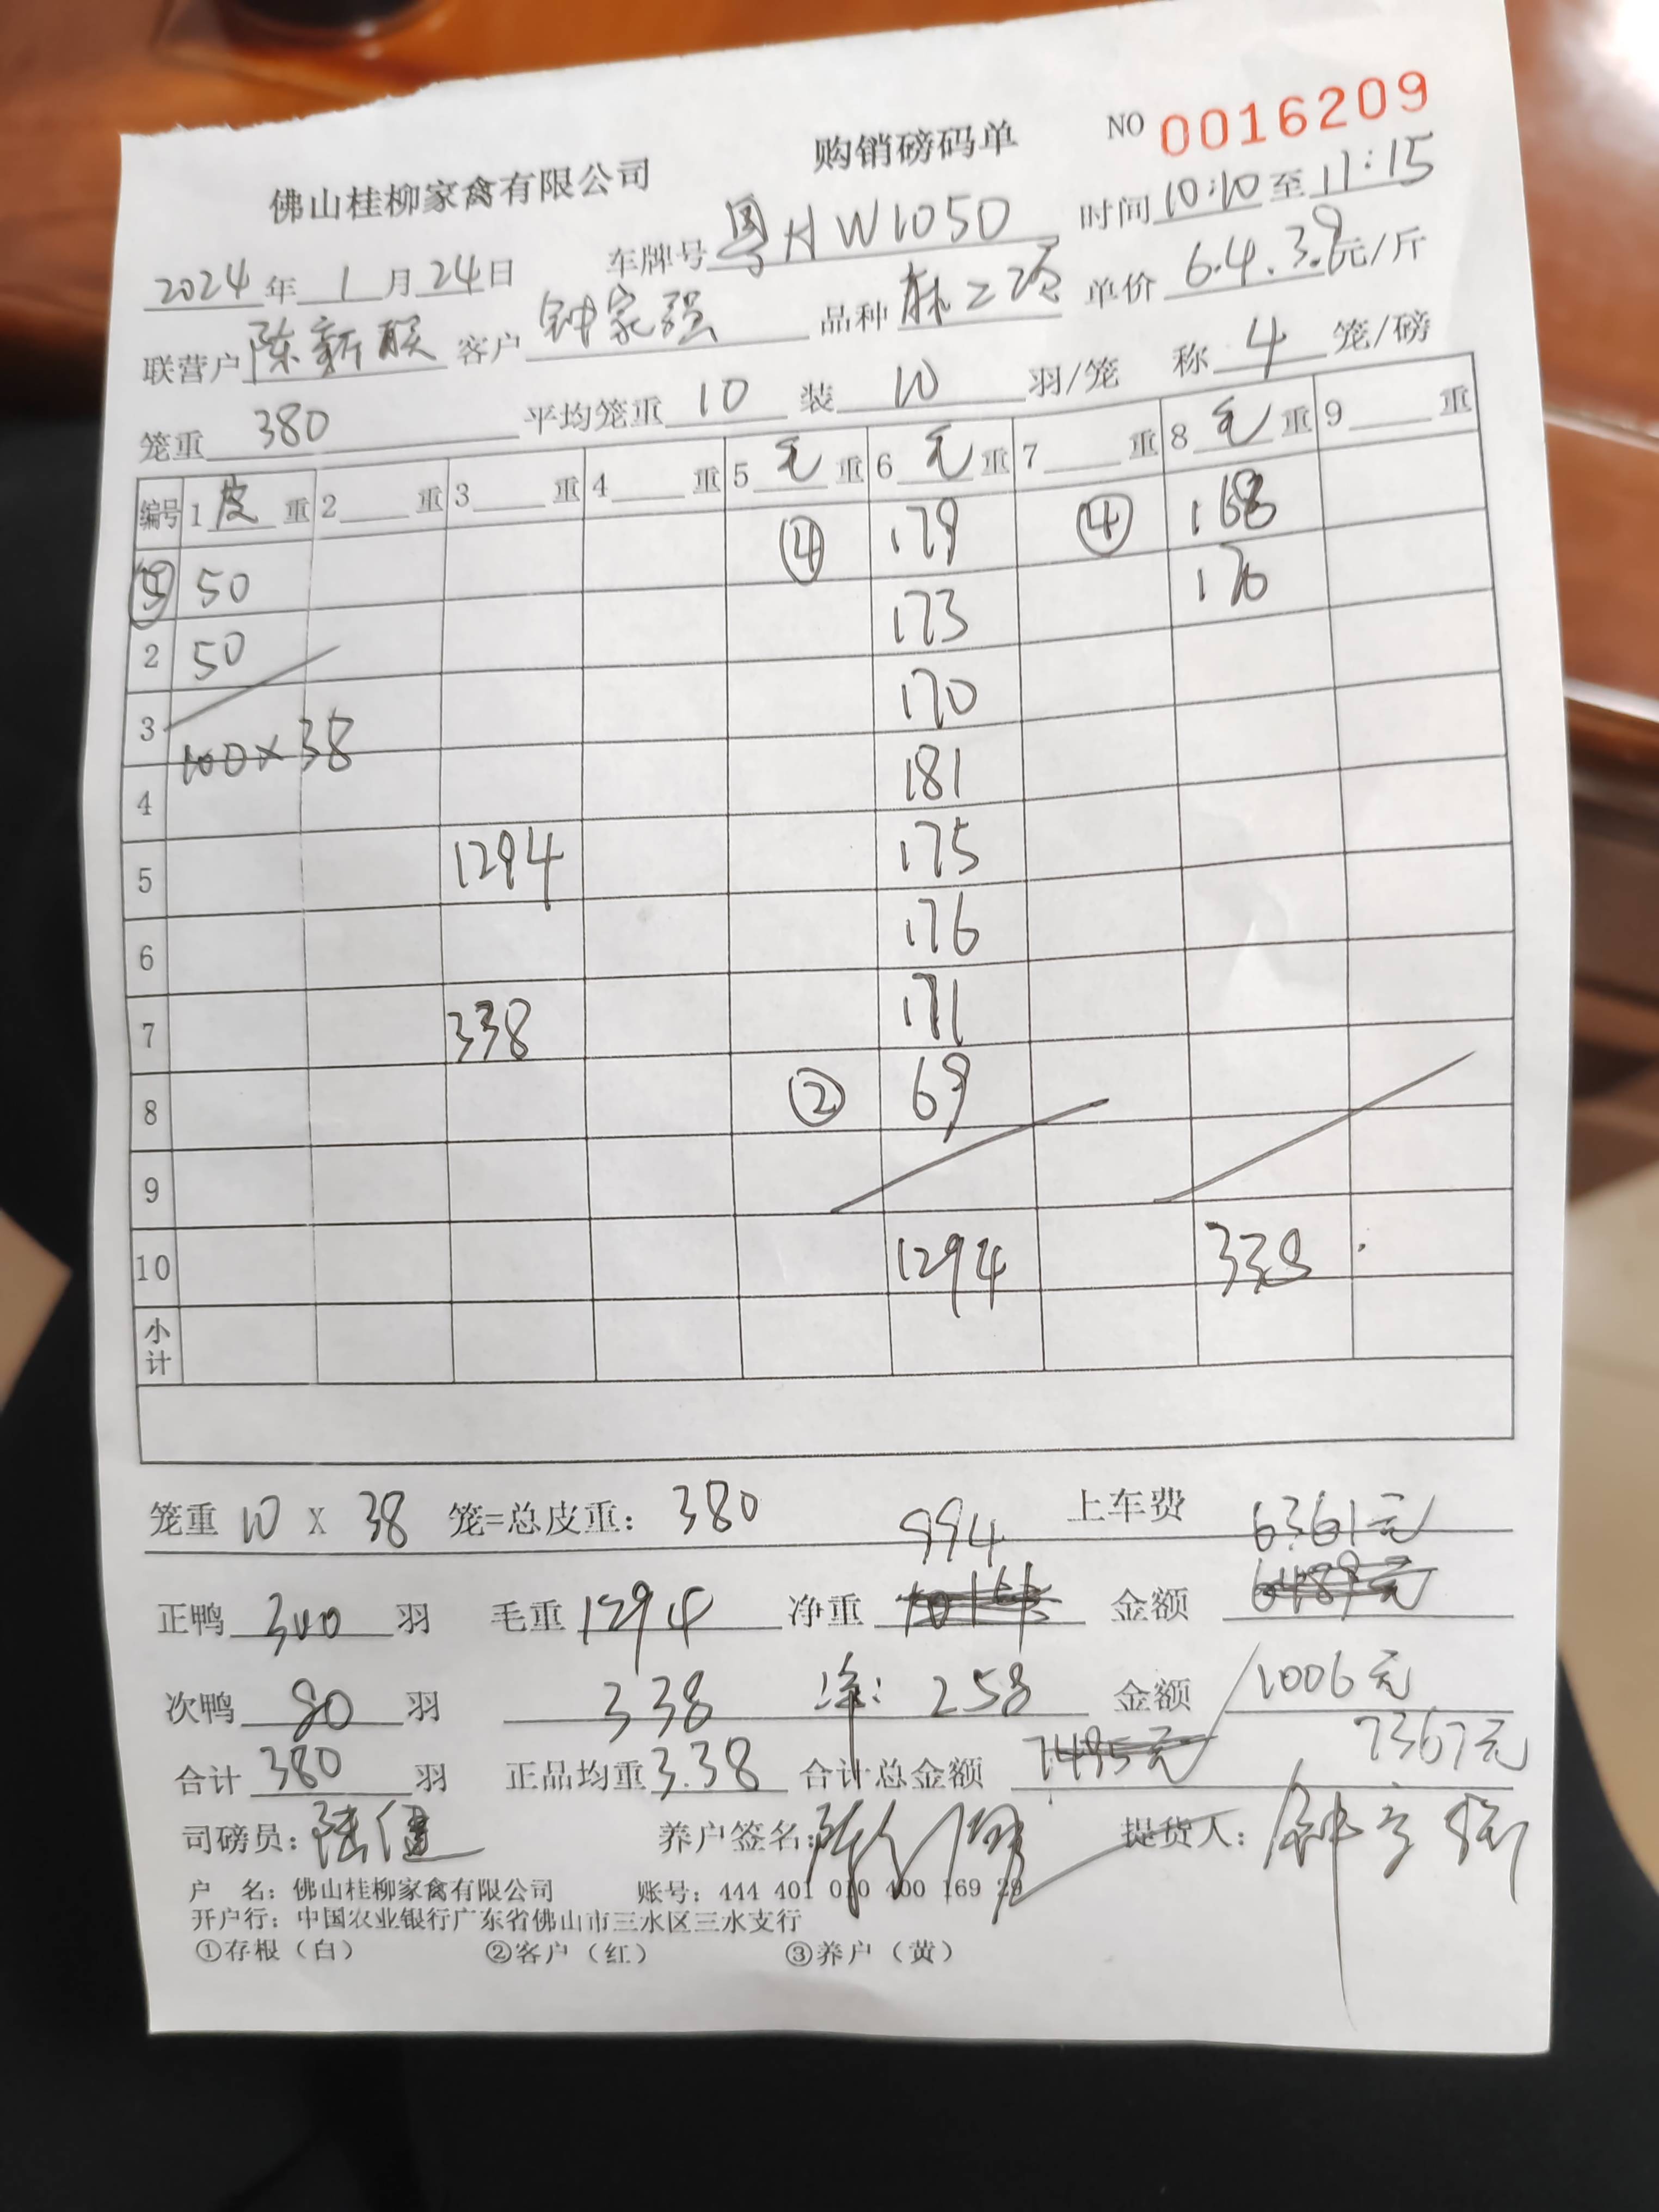 购销磅码单 NO 0016209
佛山桂柳家禽有限公司
2024年1月24日 车牌号粤HW1050 时间10:10至11:15
联营户陈新联 客户钟家强 品种 单价6.4.3.9元/斤
笼重380 平均笼重10 装10羽/笼 称4笼/磅
编号 1皮重 2重 3重 4重 5毛重 6毛重 7重 8毛重 9重
⑤ 50 ④ 179 ④ 168
2 50 173 170
3 170
100×38
4 181
5 1294 175
6 176
7 338 171
8 ② 69
9
10 1294 338
小计
笼重10 X 38 笼=总皮重: 380 上车费
994 6361元
正鸭300羽 毛重1294 净重 金额
次鸭80羽 338 净: 258 金额1006元
7367元
合计380羽 正品均重3.38 合计总金额7495元
司磅员:陆健 养户签名: 提货人:
户 名: 佛山桂柳家禽有限公司 账号: 444 401 010 400 169 29
开户行: 中国农业银行广东省佛山市三水区三水支行
①存根(白) ②客户(红) ③养户(黄)